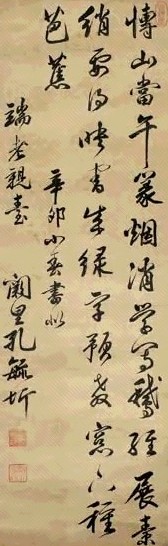 博山當午篆烟消学寫鵝經展素
綃要得映書成綠字預教窓下種
芭蕉 辛卯小春書似
端老親臺 闕里孔毓圻